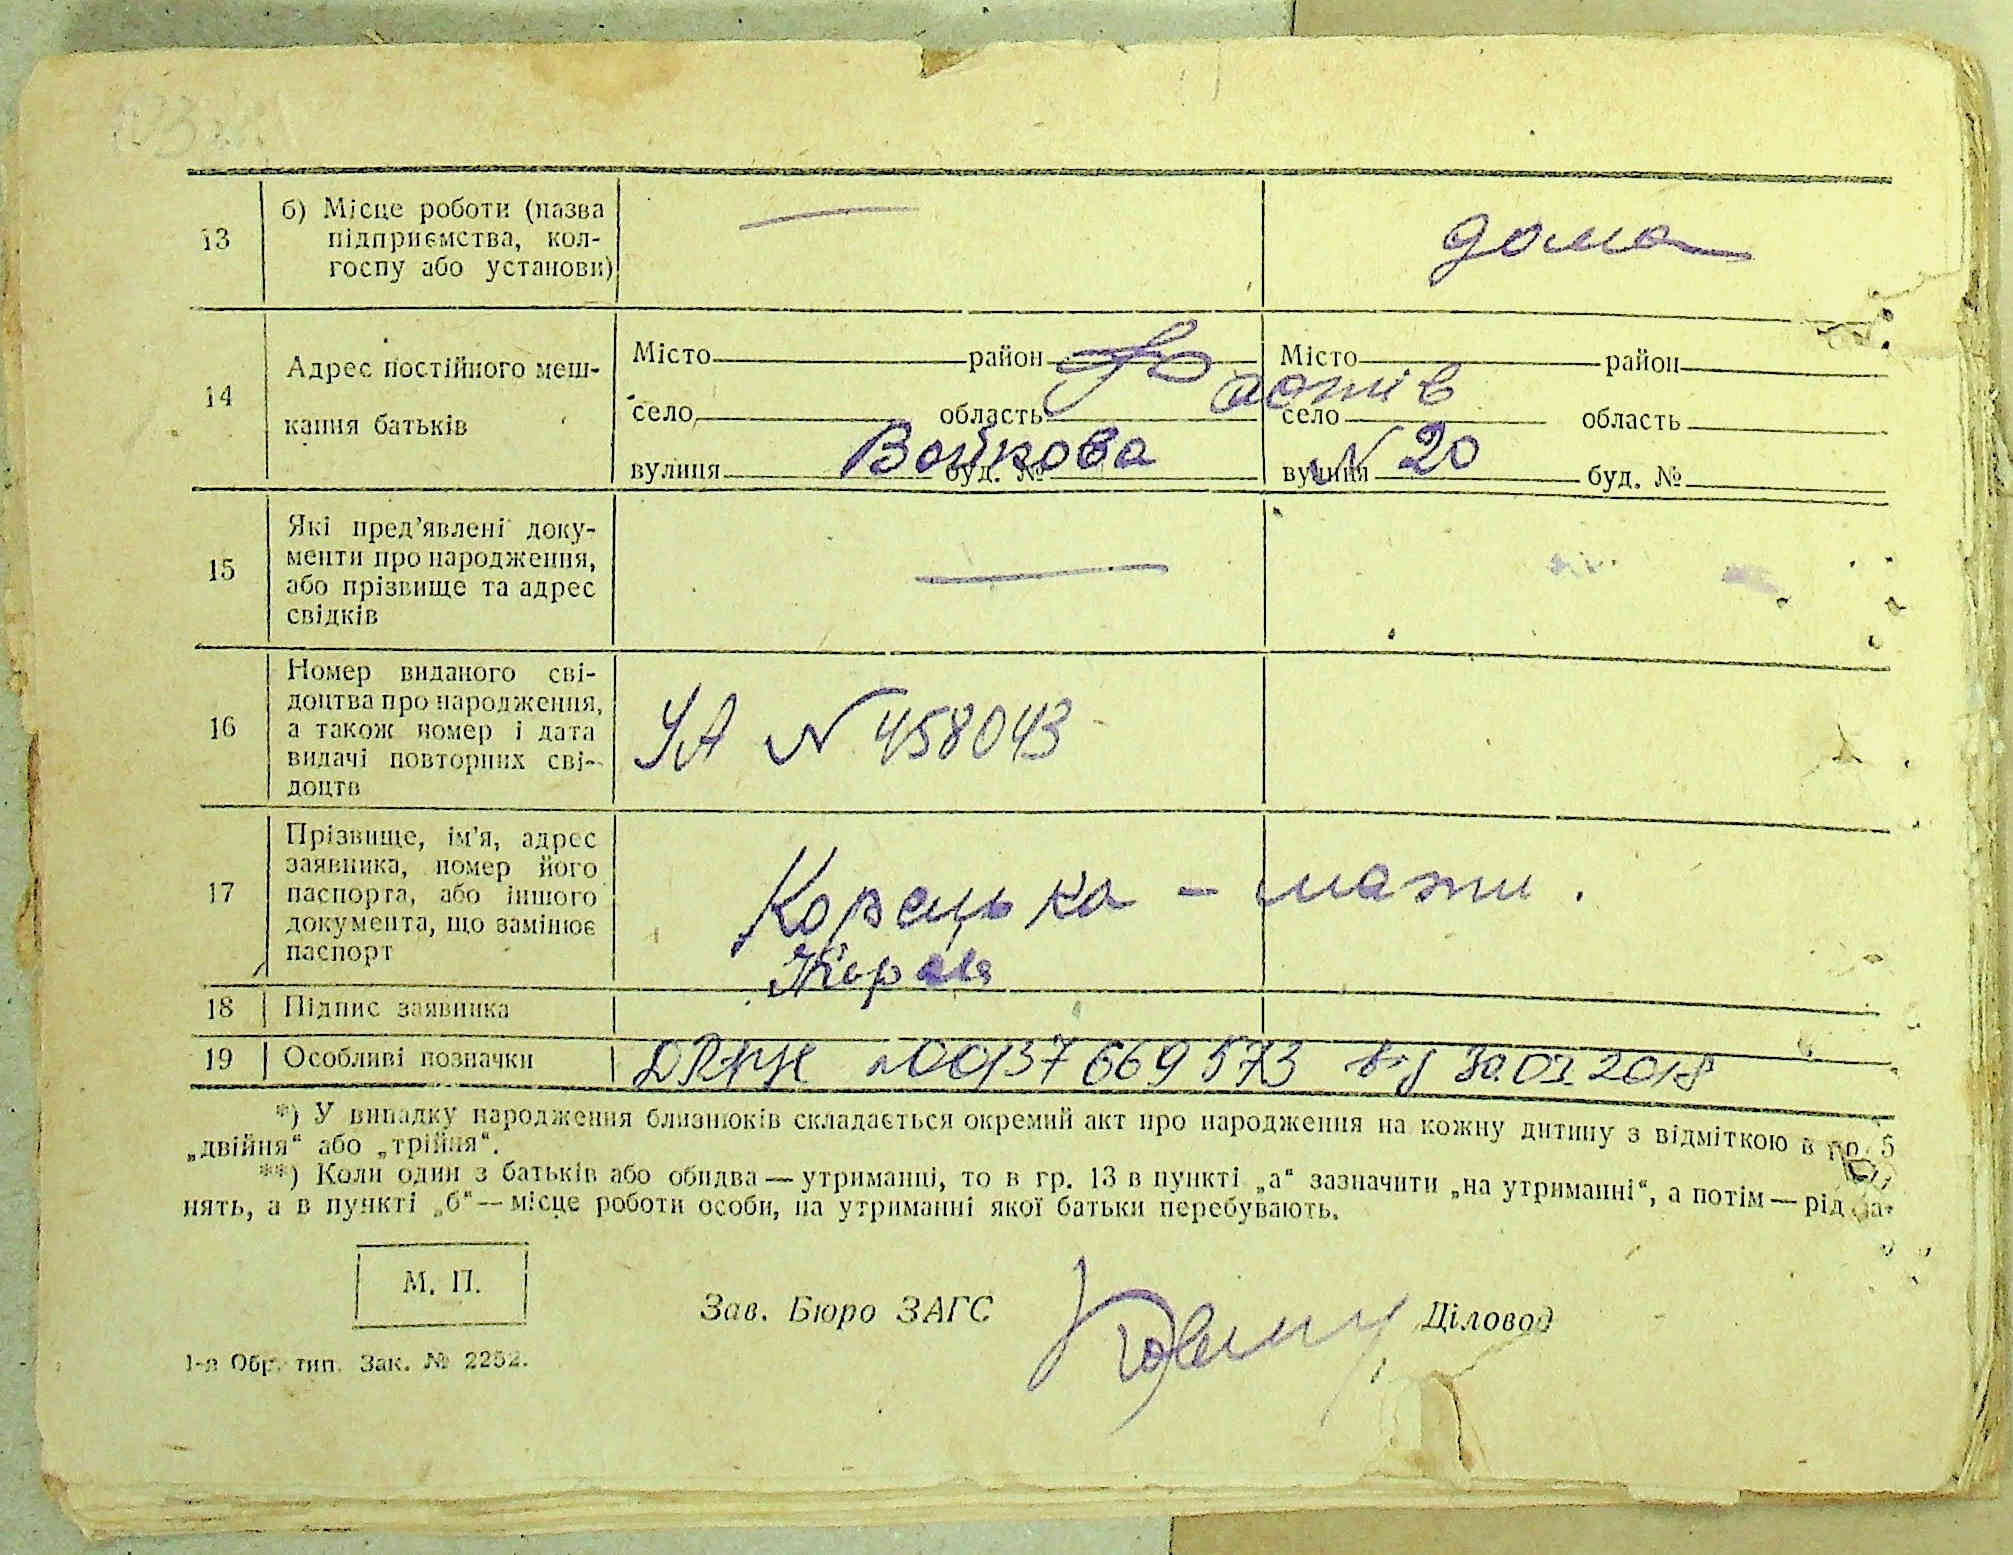 13
б) Місце роботи (назва
підприємства, кол-
госпу або установи)
—
дома
14
Адрес постійного меш-
кання батьків
Місто район
село область
вулиця буд. №
Місто район
село область
вулиця буд. №
Фастів
Войкова
N 20
15
Які пред’явлені доку-
менти про народження,
або прізвище та адрес
свідків
—
16
Номер виданого сві-
доцтва про народження,
а також номер і дата
видачі повторних сві-
доцтв
УА N 458043
17
Прізвище, ім’я, адрес
заявника, номер його
паспорта, або іншого
документа, що замінює
паспорт
Корецька - мати.
18
Підпис заявника
19
Особливі позначки
ДРАЦС 00137669573 від 30.01.2018
*) У випадку народження близнюків складається окремий акт про народження на кожну дитину з відміткою в гр. 5
„двійня“ або „трійня“.
**) Коли один з батьків або обидва — утриманці, то в гр. 13 в пункті „а“ зазначити „на утриманні“, а потім — рід за-
нять, а в пункті „б“ — місце роботи особи, на утриманні якої батьки перебувають.
М. П.
Зав. Бюро ЗАГС
Діловод
1-я Обр. тип. Зак. № 2252.